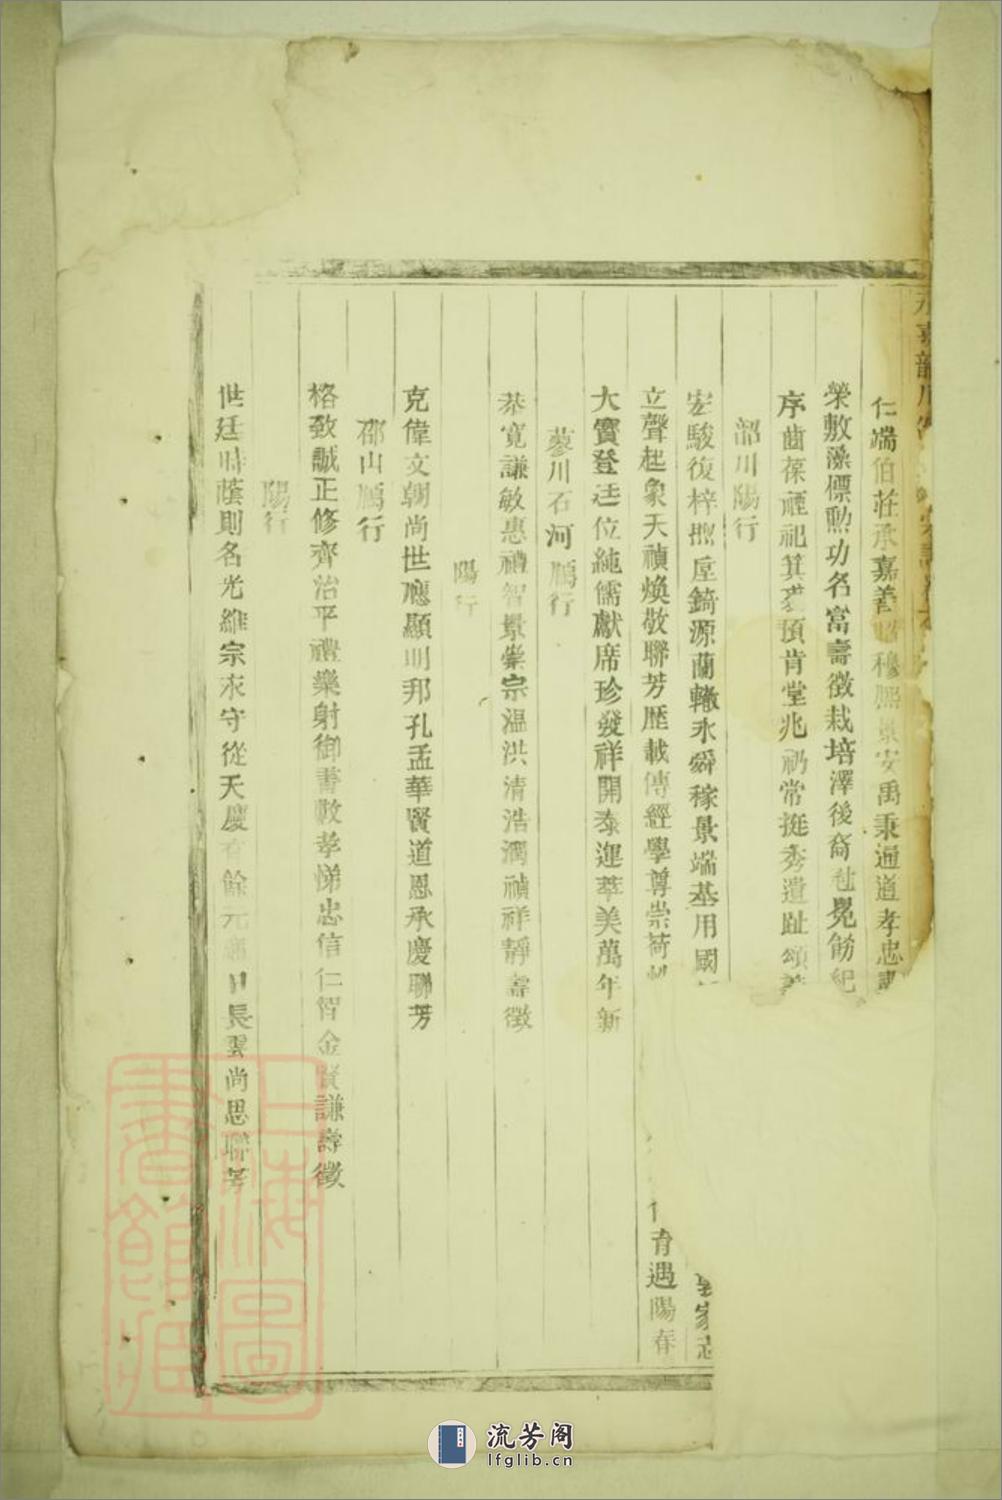 嘉韶川
仁端伯莊承嘉善昭穆熙景安禹秉通道孝忠
榮敷藻儒勲功名富壽徵栽培澤後裔
序齒葆禋祀箕裘預肯堂兆礽常挺秀遺趾頌
韶川陽行
宏駿復梓
錡源蘭轍永舜稼景端基用國
家
立聲起象天禎煥敬聯芳歷載傳經學尊崇荷
育遇陽春
大寶登廷位純儒獻席珍發祥開泰運萃美萬年新
蓼川石河鴈行
恭寬謙敏惠禮智景崇宗温洪清浩潤禎祥靜壽徵
陽行
克偉文朝尚世應顯明邦孔孟華賢道恩承慶聯芳
邵山鴈行
格致誠正修齊治平禮樂射御書數孝悌忠信仁智金賢謙壽徵
陽行
世廷時蔭則名光維宗求守從天慶有餘元
日長雲尚思聯芳
上海圖書館藏
流芳阁
lfglib.cn